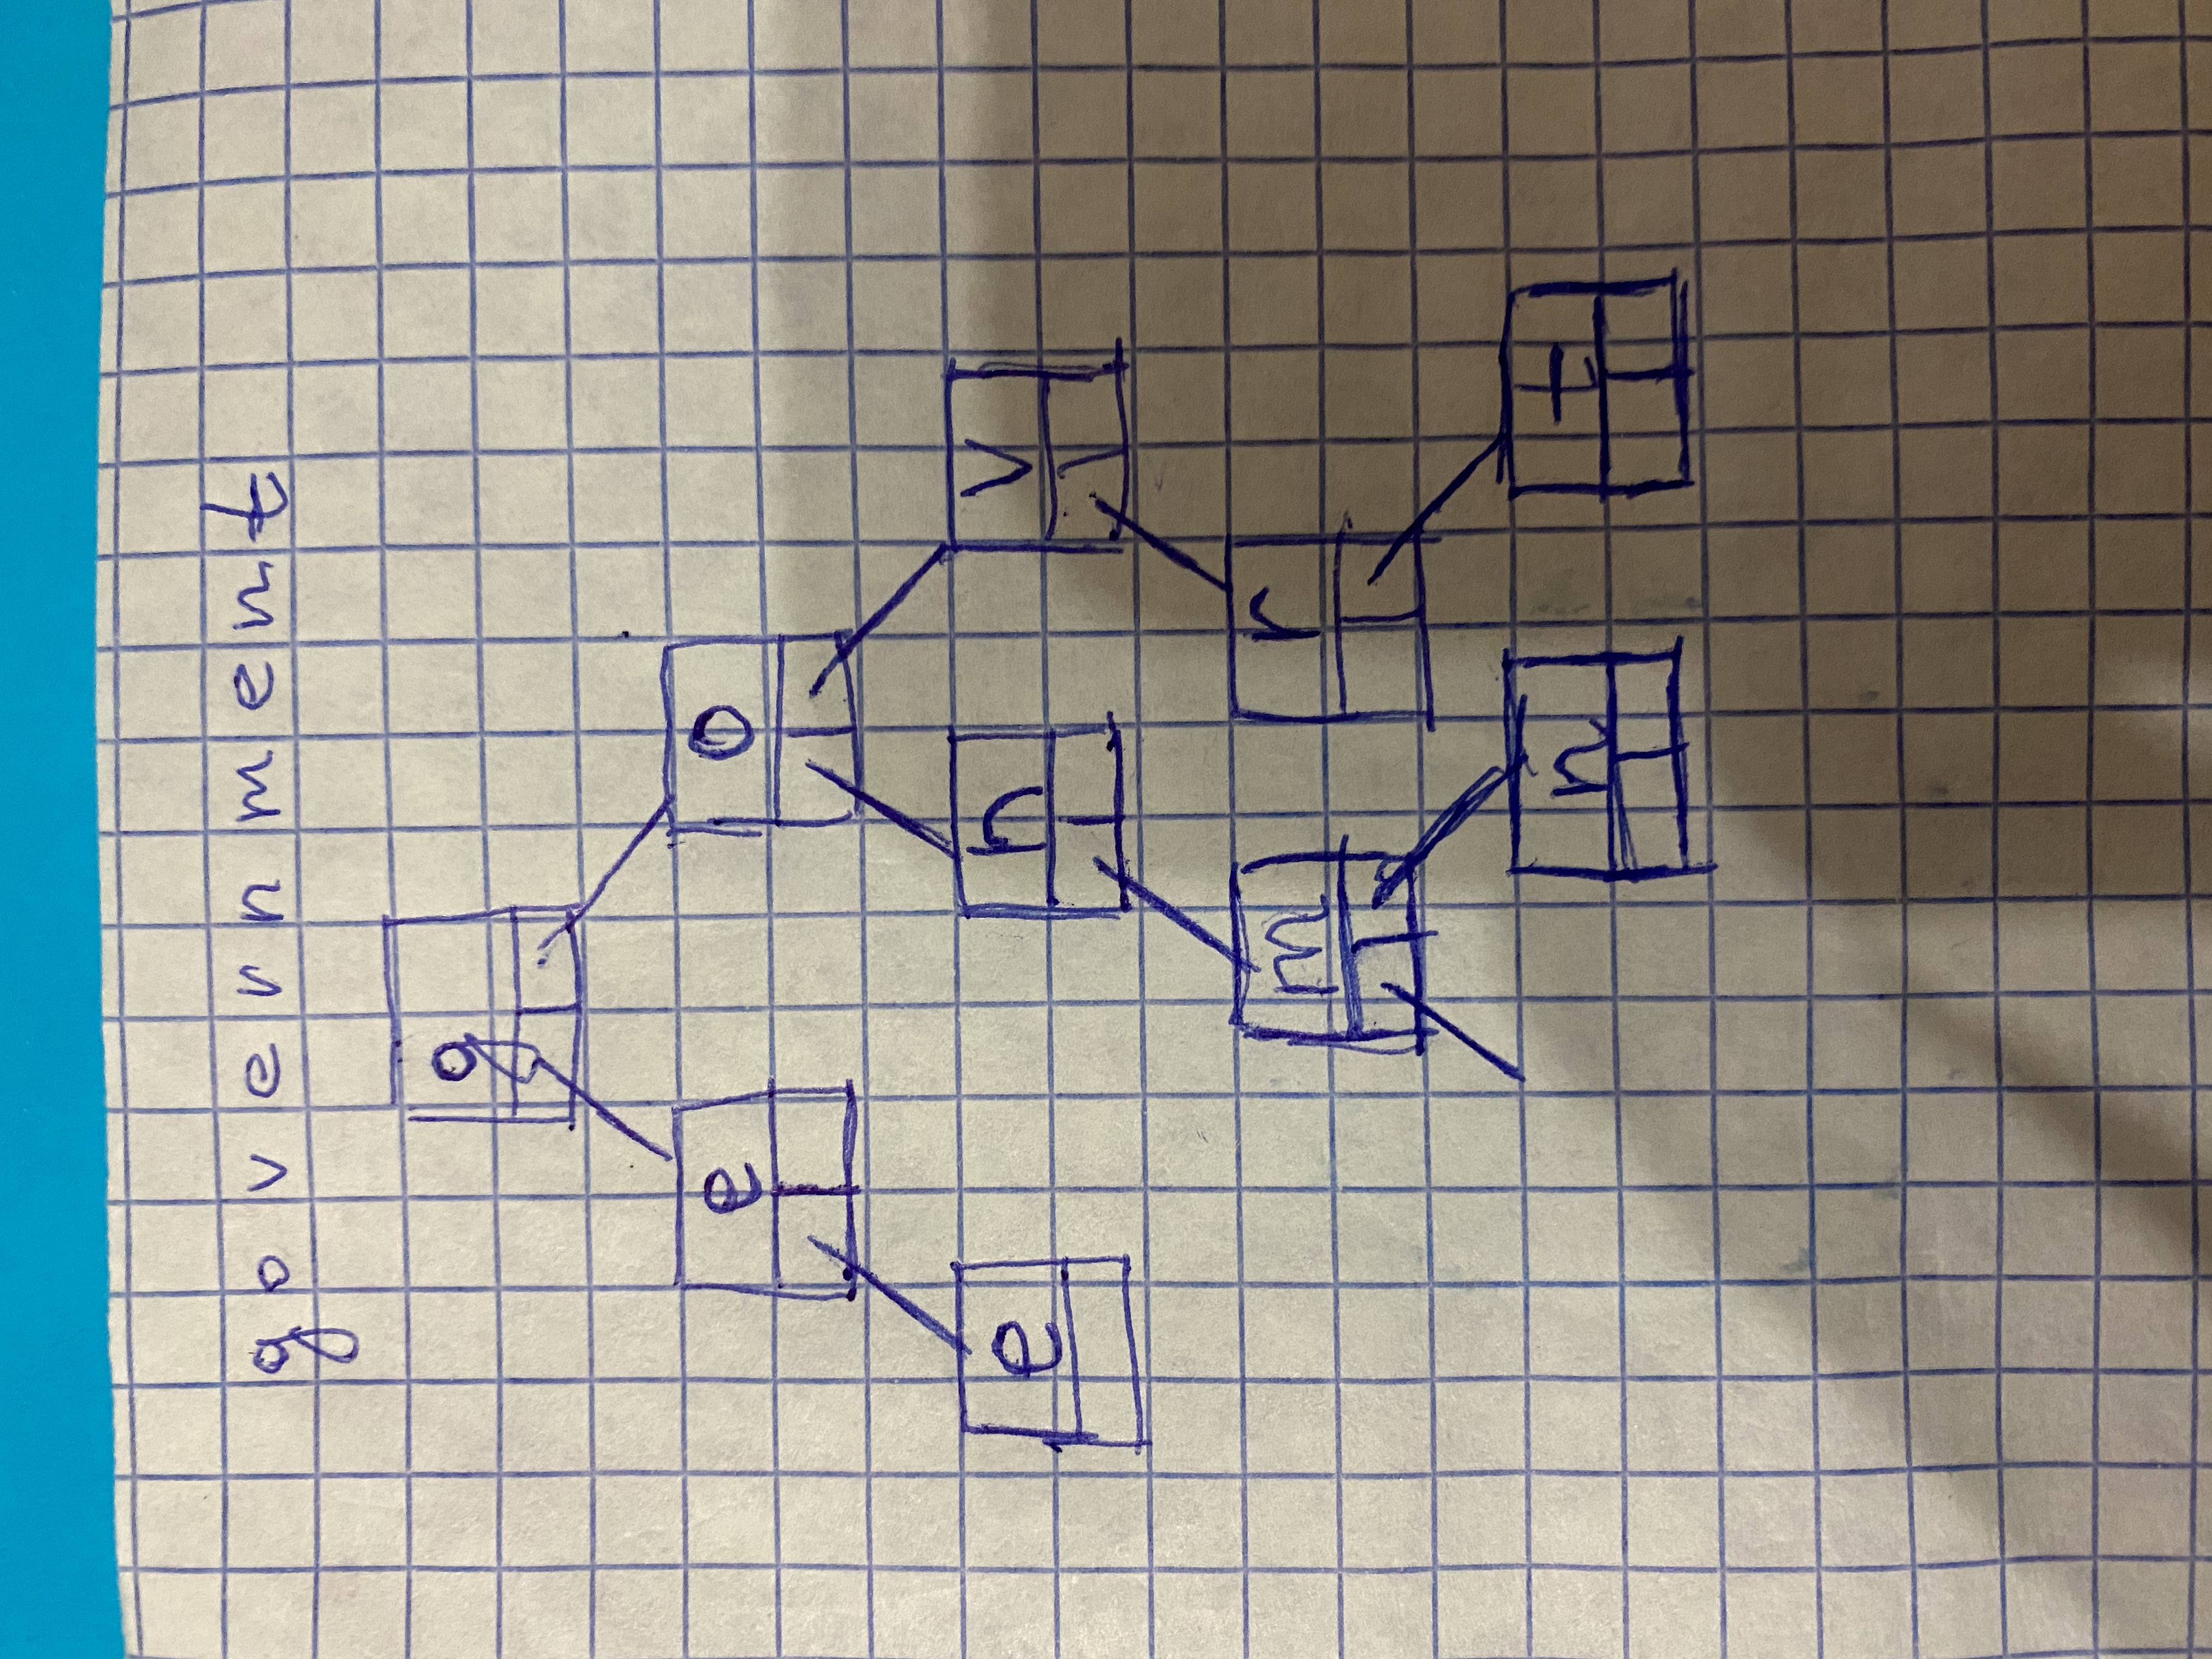 g o v e r n m e n t
g
e o
e n v
m r
n t